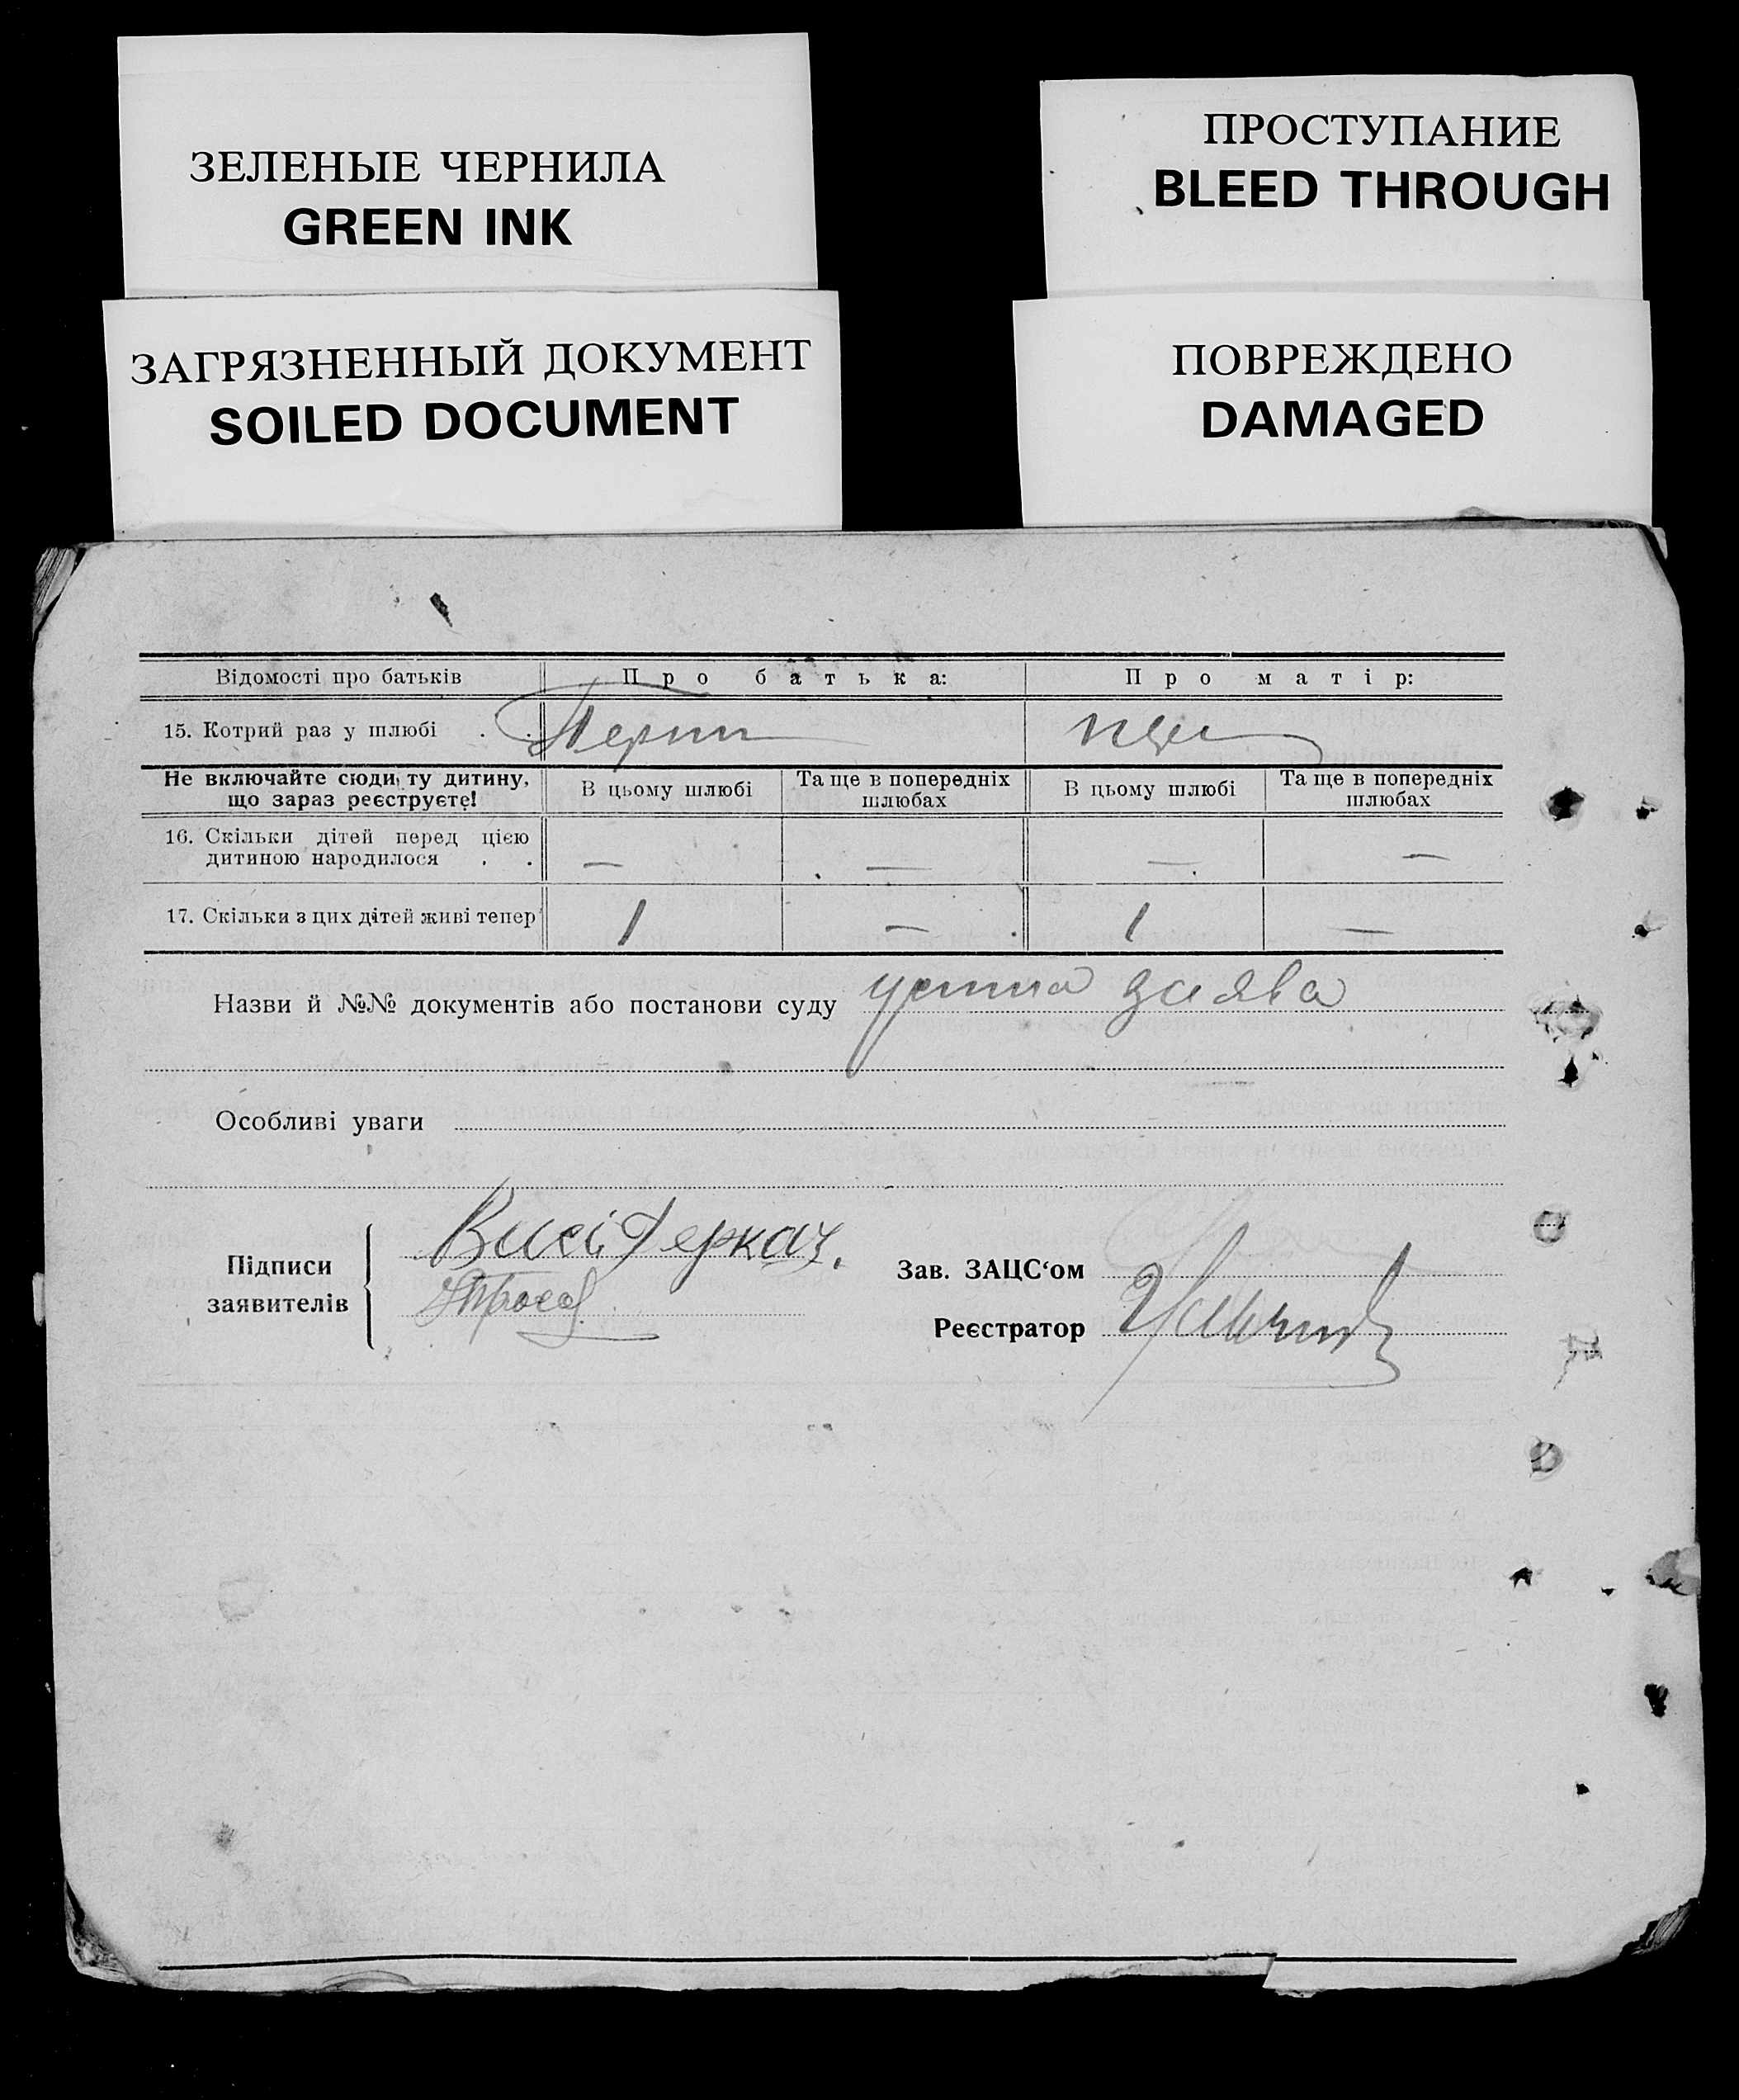 ЗЕЛЕНЫЕ ЧЕРНИЛА
GREEN INK
ПРОСТУПАНИЕ
BLEED THROUGH
ЗАГРЯЗНЕННЫЙ ДОКУМЕНТ
SOILED DOCUMENT
ПОВРЕЖДЕНО
DAMAGED
Відомості про батьків Про батька: Про матір:
15. Котрий раз у шлюбі . .
Не включайте сюди ту дитину, що зараз реєструєте! В цьому шлюбі Та ще в попередніх шлюбах В цьому шлюбі Та ще в попередніх шлюбах
16. Скільки дітей перед цією
дитиною народилося . . — — — —
17. Скільки з цих дітей живі тепер 1 — 1 —
Назви й №№ документів або постанови суду устна заява
Особливі уваги
Підписи
заявителів
Деркач.
Зав. ЗАЦС‘ом
Реєстратор